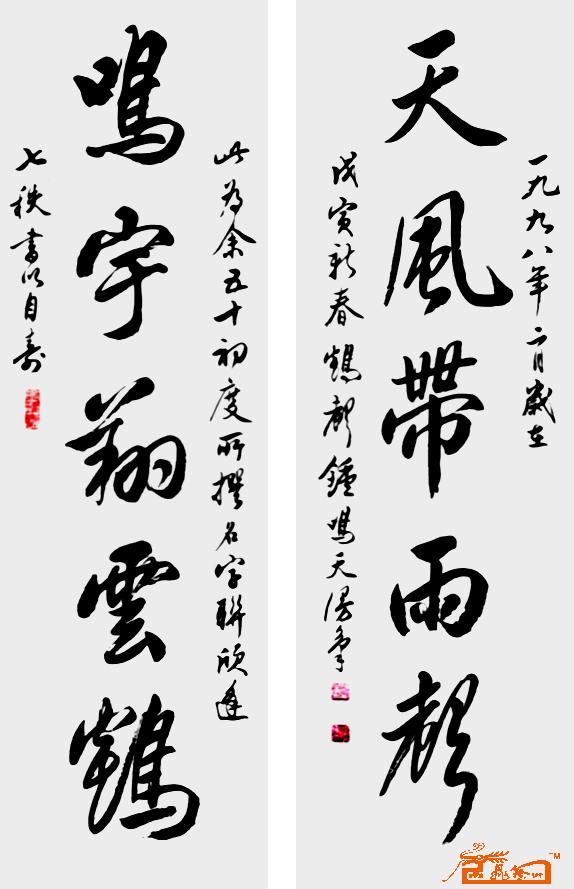 一九九八年二月歲在
天風帶雨聲
戊寅新春鶴聲鍾鳴天漫筆
此為余五十初度所撰名字聯欣逢
鳴宇翔雲鶴
七秩書以自壽